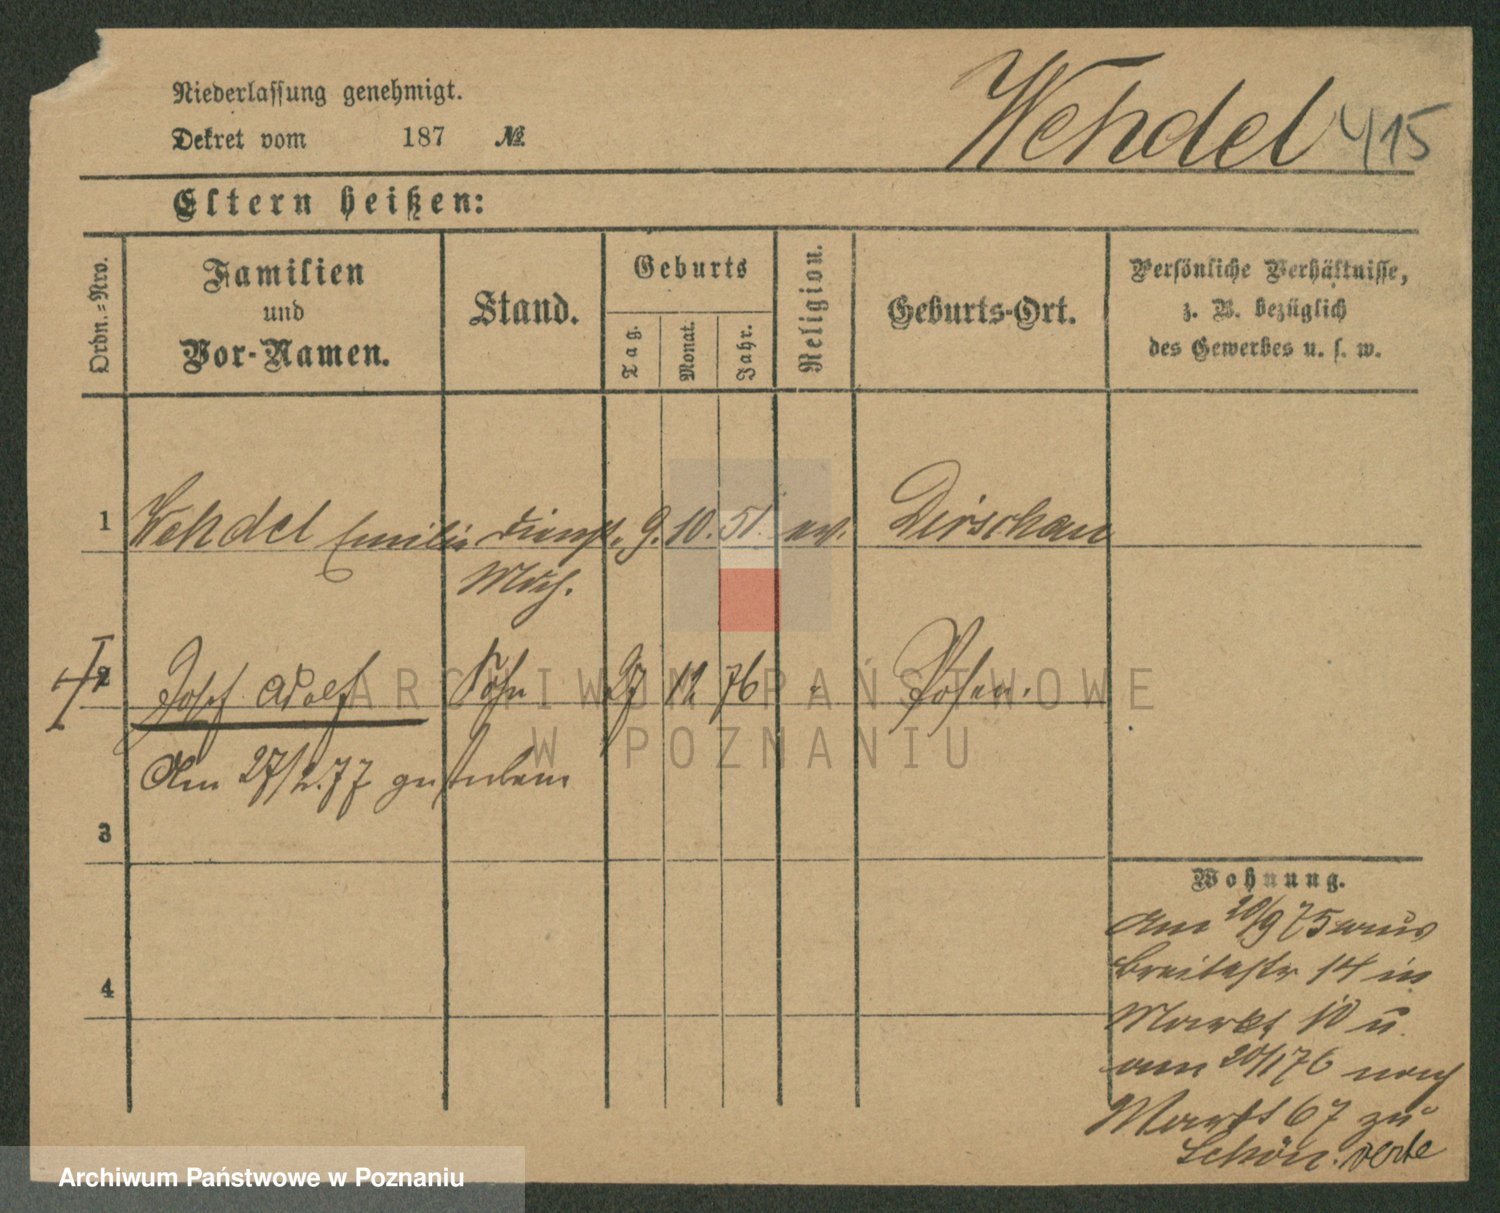 Niederlassung genehmigt.
Wehdel 415
Dekret vom 187 №
Eltern heißen:
Ordn.=Nro.
Familien und Vor-Namen.
Stand.
Geburts
Tag.
Monat.
Jahr.
Religion.
Geburts-Ort.
Persönliche Verhältnisse, z. B. bezüglich des Gewerbes u. s. w.
1 Wehdel Emilie Dienst- 9. 10. 51. ev. Dirschau
Mdch.
2 Josef Adolf Sohn 27 12 76 " Posen.
Am 27/2.77 gestorben
3
4
Wohnung.
Am 20/9 75 aus
Breitestr 14 in
Markt 10 u
am 20/1 76 nach
Markt 67 zu
Schön. verte
ARCHIWUM PAŃSTWOWE
W POZNANIU
Archiwum Państwowe w Poznaniu